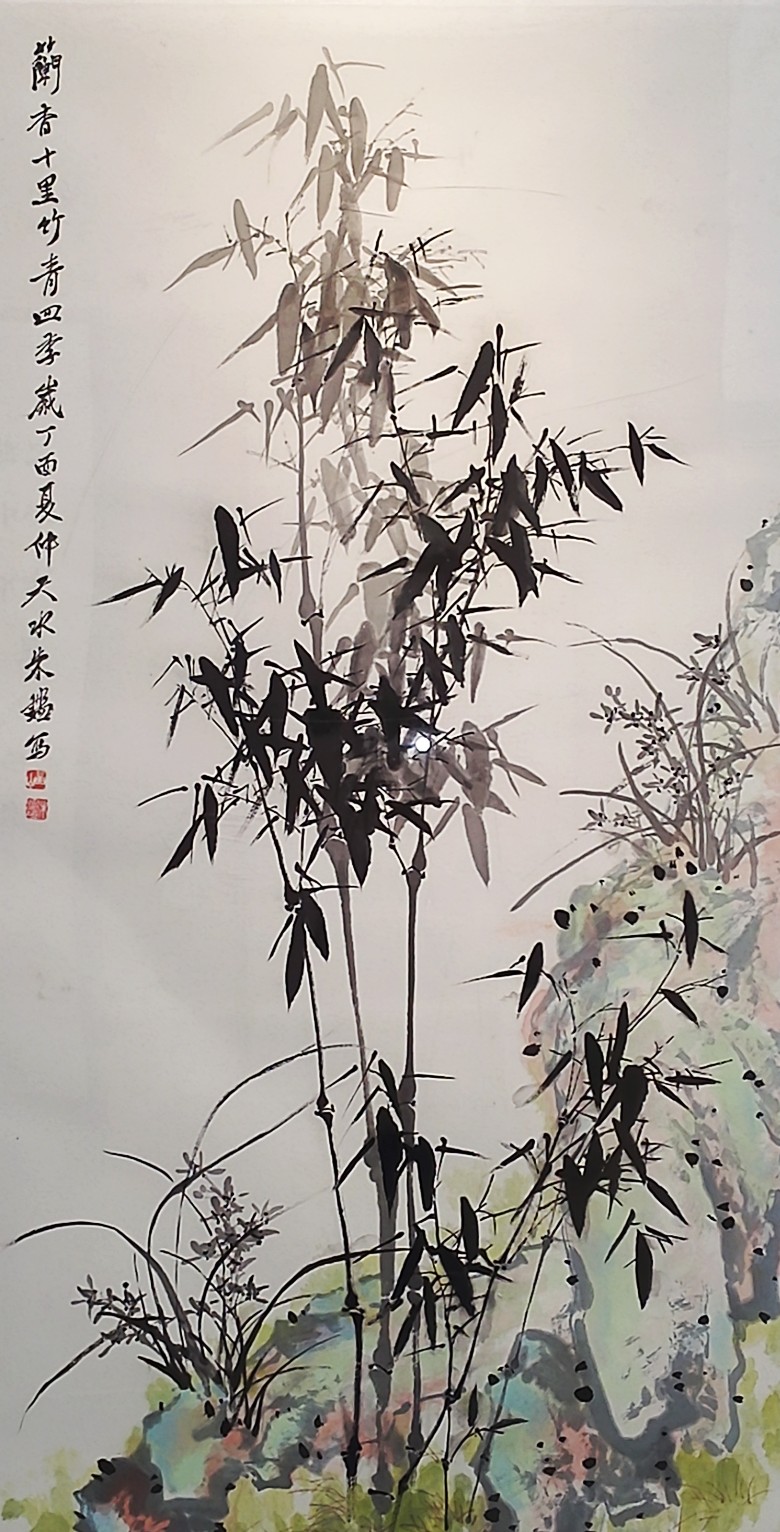 蘭香十里竹青四季歲丁酉夏仲天水朱鎰寫